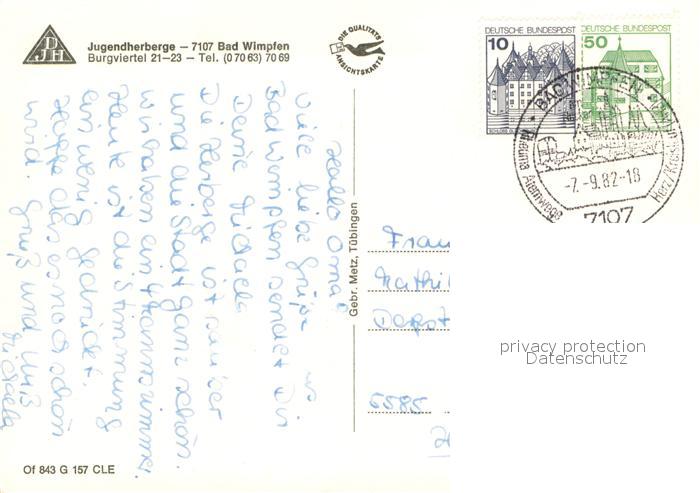 DJH
Jugendherberge – 7107 Bad Wimpfen
Burgviertel 21–23 – Tel. (0 70 63) 70 69
DIE QUALITÄTS
ANSICHTSKARTE
DEUTSCHE BUNDESPOST
10
DEUTSCHE BUNDESPOST
50
BAD WIMPFEN
Rheuma Atemwege
Herz/Kreislauf
-7.-9.82-18
7107
Hallo Oma!
Viele liebe Grüße aus
Bad Wimpfen sendet Dir
Deine Michaela
Die Herberge ist sauber
und die Stadt ganz schön.
Wir haben ein 4 Mannzimmer.
Heute ist die Stimmung
ein wenig gedrückt.
Hoffe das es noch schön
wird. Gruß und Kuß
Michaela
Gebr. Metz, Tübingen
Frau
Mathil
6585
privacy protection
Datenschutz
Of 843 G 157 CLE